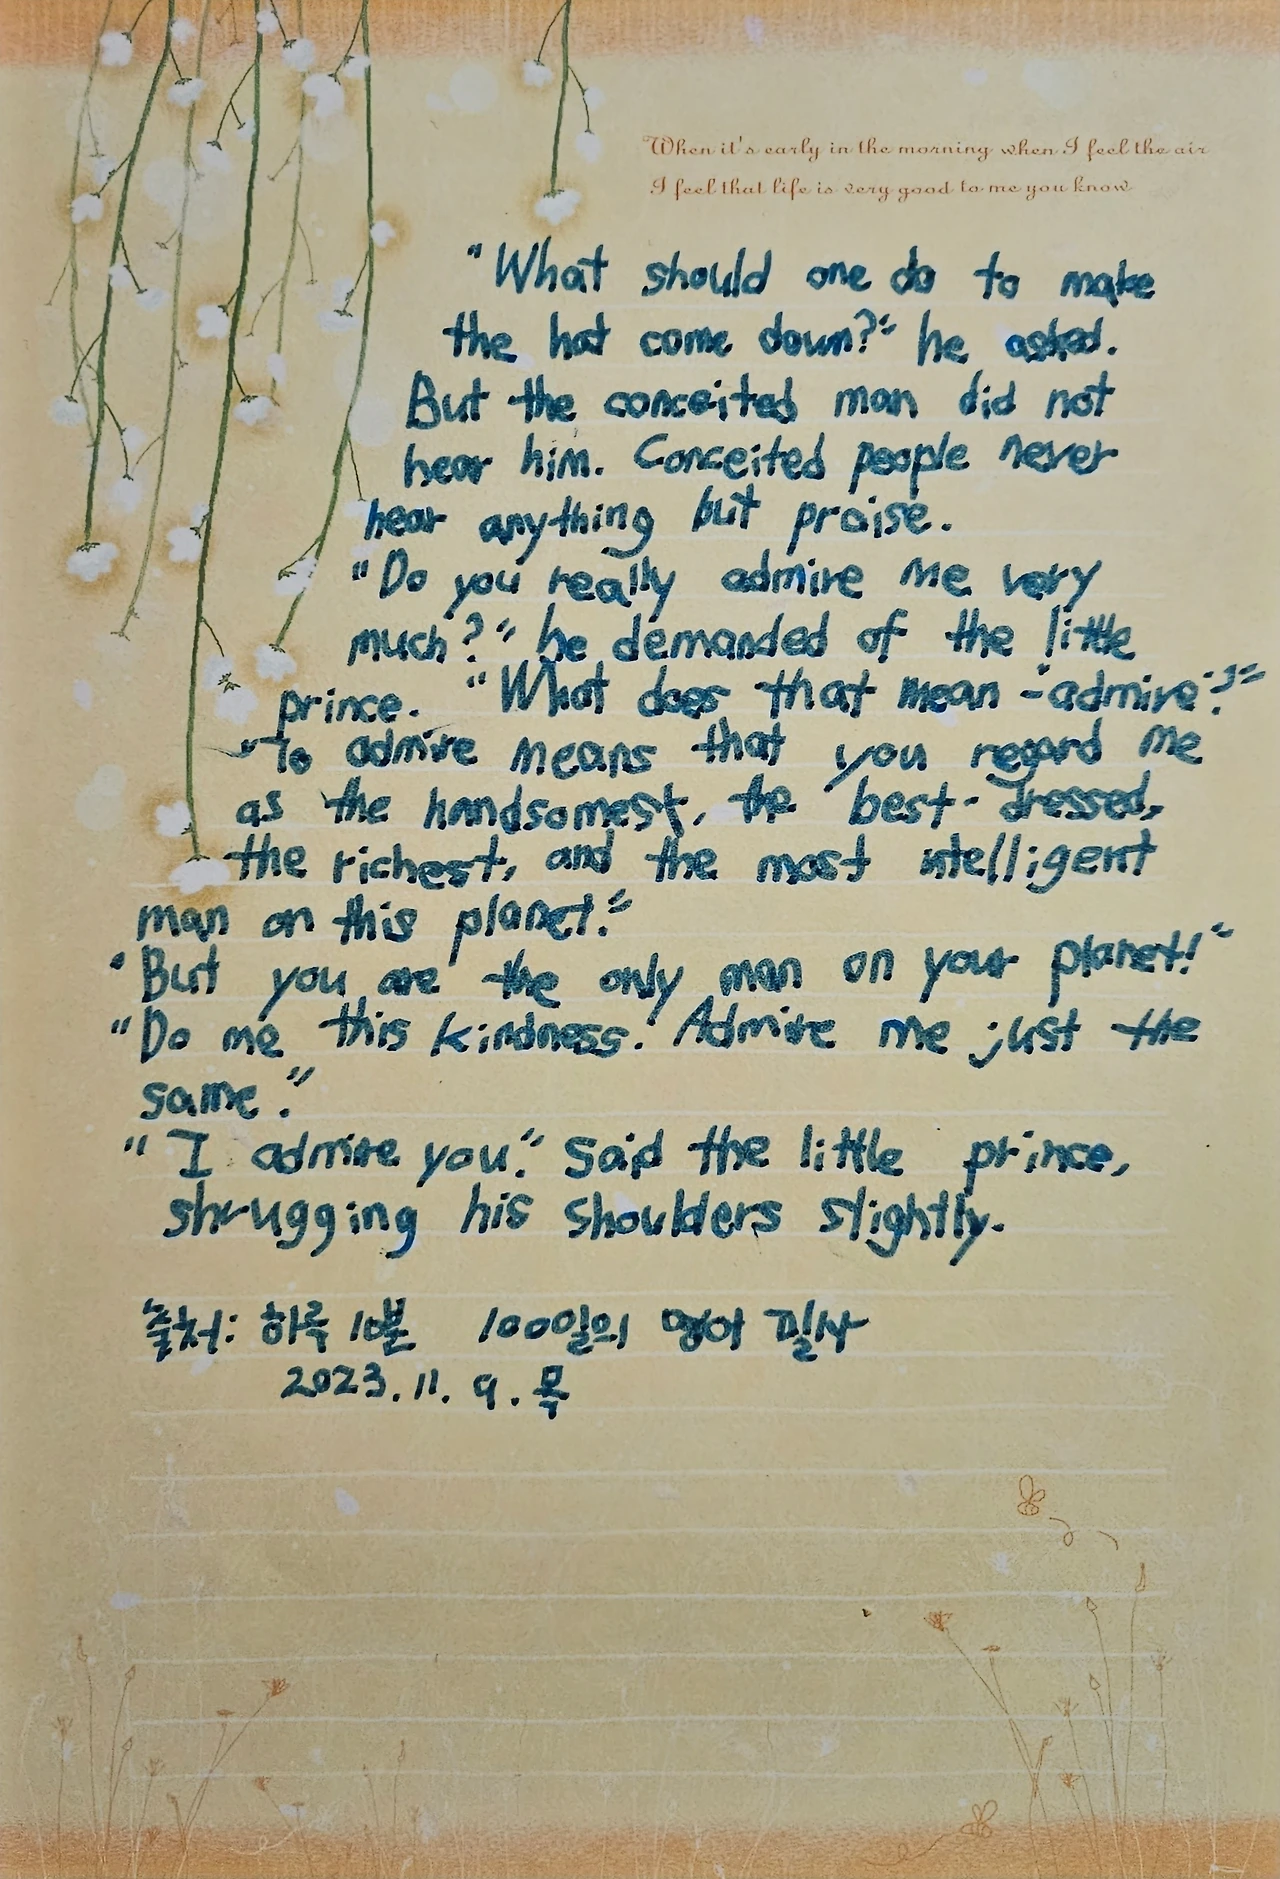 When it's early in the morning when I feel the air
I feel that life is very good to me you know
"What should one do to make
the hat come down?" he asked.
But the conceited man did not
hear him. Conceited people never
hear anything but praise.
"Do you really admire me very
much?" he demanded of the little
prince. "What does that mean - 'admire'?"
"To admire means that you regard me
as the handsomest, the best-dressed,
the richest, and the most intelligent
man on this planet."
"But you are the only man on your planet!"
"Do me this kindness. Admire me just the
same."
"I admire you." Said the little prince,
shrugging his shoulders slightly.
출처: 하루 10분 100일의 영어 필사
2023. 11. 9. 목